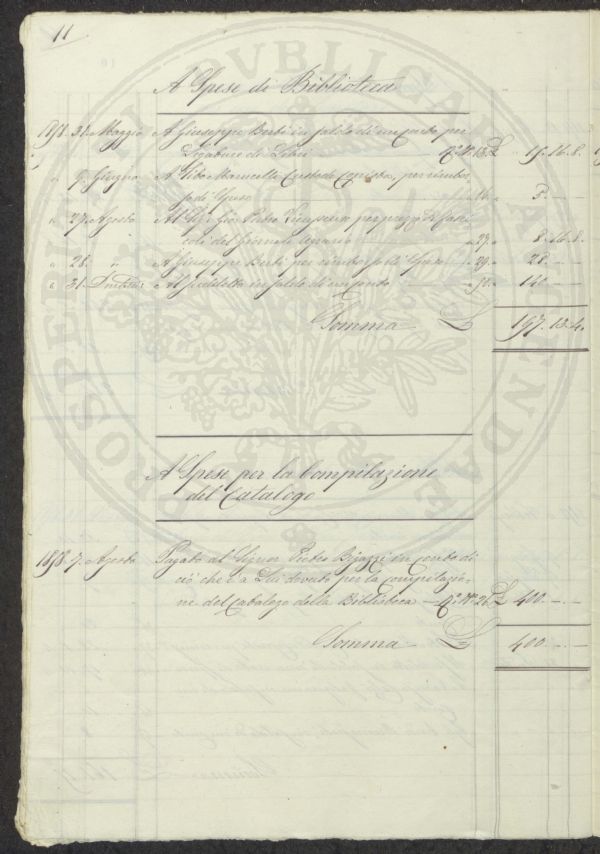 11
A Spese di Biblioteca
1858. 31. Maggio A Giuseppe Berti in saldo di un conto per
Legature di Libri — Qᵃ Nº 13. £ 15. 16. 8.
" 9. Giugno A Marucelli Custode, per
di Spese " 16. " 5. — —
" 29. Agosto Al Sigr Gio. Pietro Vieusseux per prezzo di
coli del Giornale Agrario — " 27. " 8. 16. 8.
" 28. " A Giuseppe Berti per di Spese — " 29. " 28. — —
" 31. Al suddetto in saldo di un conto — " 140. — —
Somma £ 197. 13. 4.
A Spese per la Compilazione
del Catalogo
1858. 7. Agosto Pagato al Signor Pietro Bigazzi in conto di
ciò che è a Lui dovuto per la compilazio-
ne del Catalogo della Biblioteca — Qᵃ Nº 26. £ 400. — —
Somma £ 400. — —
PROSPERITATI PUBLICAE AUGENDAE